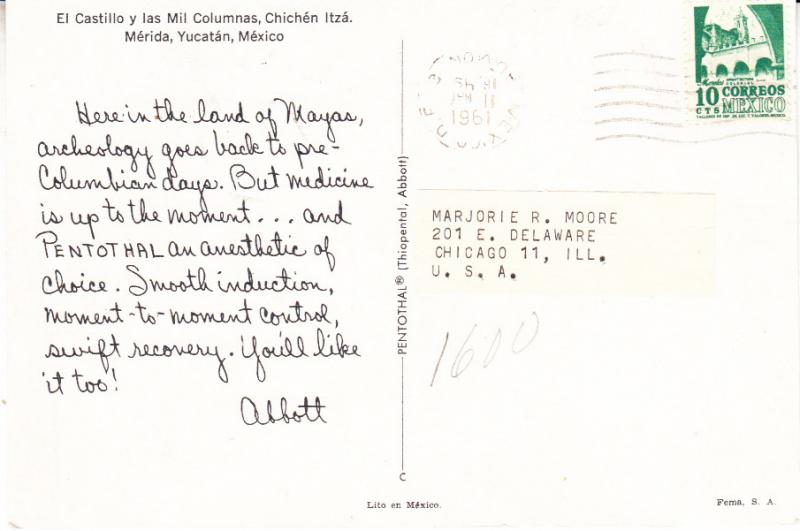 El Castillo y las Mil Columnas, Chichén Itzá.
Mérida, Yucatán, México
Here in the land of Mayas,
archeology goes back to pre-
Columbian days. But medicine
is up to the moment... and
PENTOTHAL an anesthetic of
choice. Smooth induction,
moment-to-moment control,
swift recovery. You'll like
it too!
Abbott
PENTOTHAL® (Thiopental, Abbott)
C
1961
10 CORREOS
CTS MEXICO
MARJORIE R. MOORE
201 E. DELAWARE
CHICAGO 11, ILL.
U. S. A.
1600
Lito en México.
Fema, S. A.